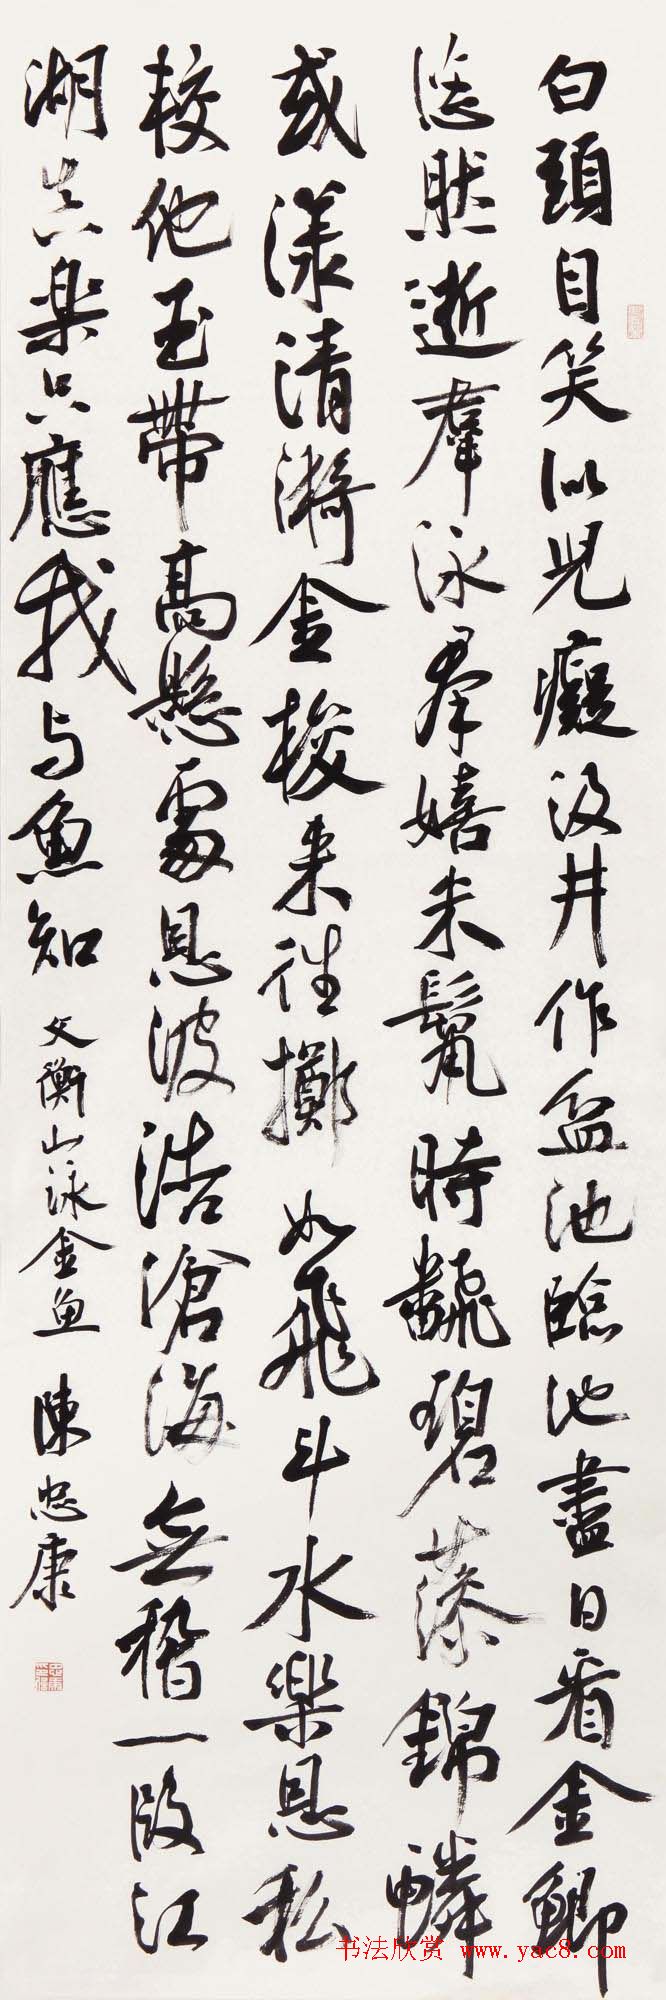 白頭自笑似兒癡汲井作盆池臨池盡日看金鯽
悠然逝群泳羣嬉朱鬣時翻碧藻錦鱗
或漾清漪金梭来往擲如飛斗水樂恩私
較他玉帶高懸處恩波浩滄海無稽一段江
湖真楽只應我与魚知 文衡山泳金魚 陳忠康
书法欣赏 www.yac8.com